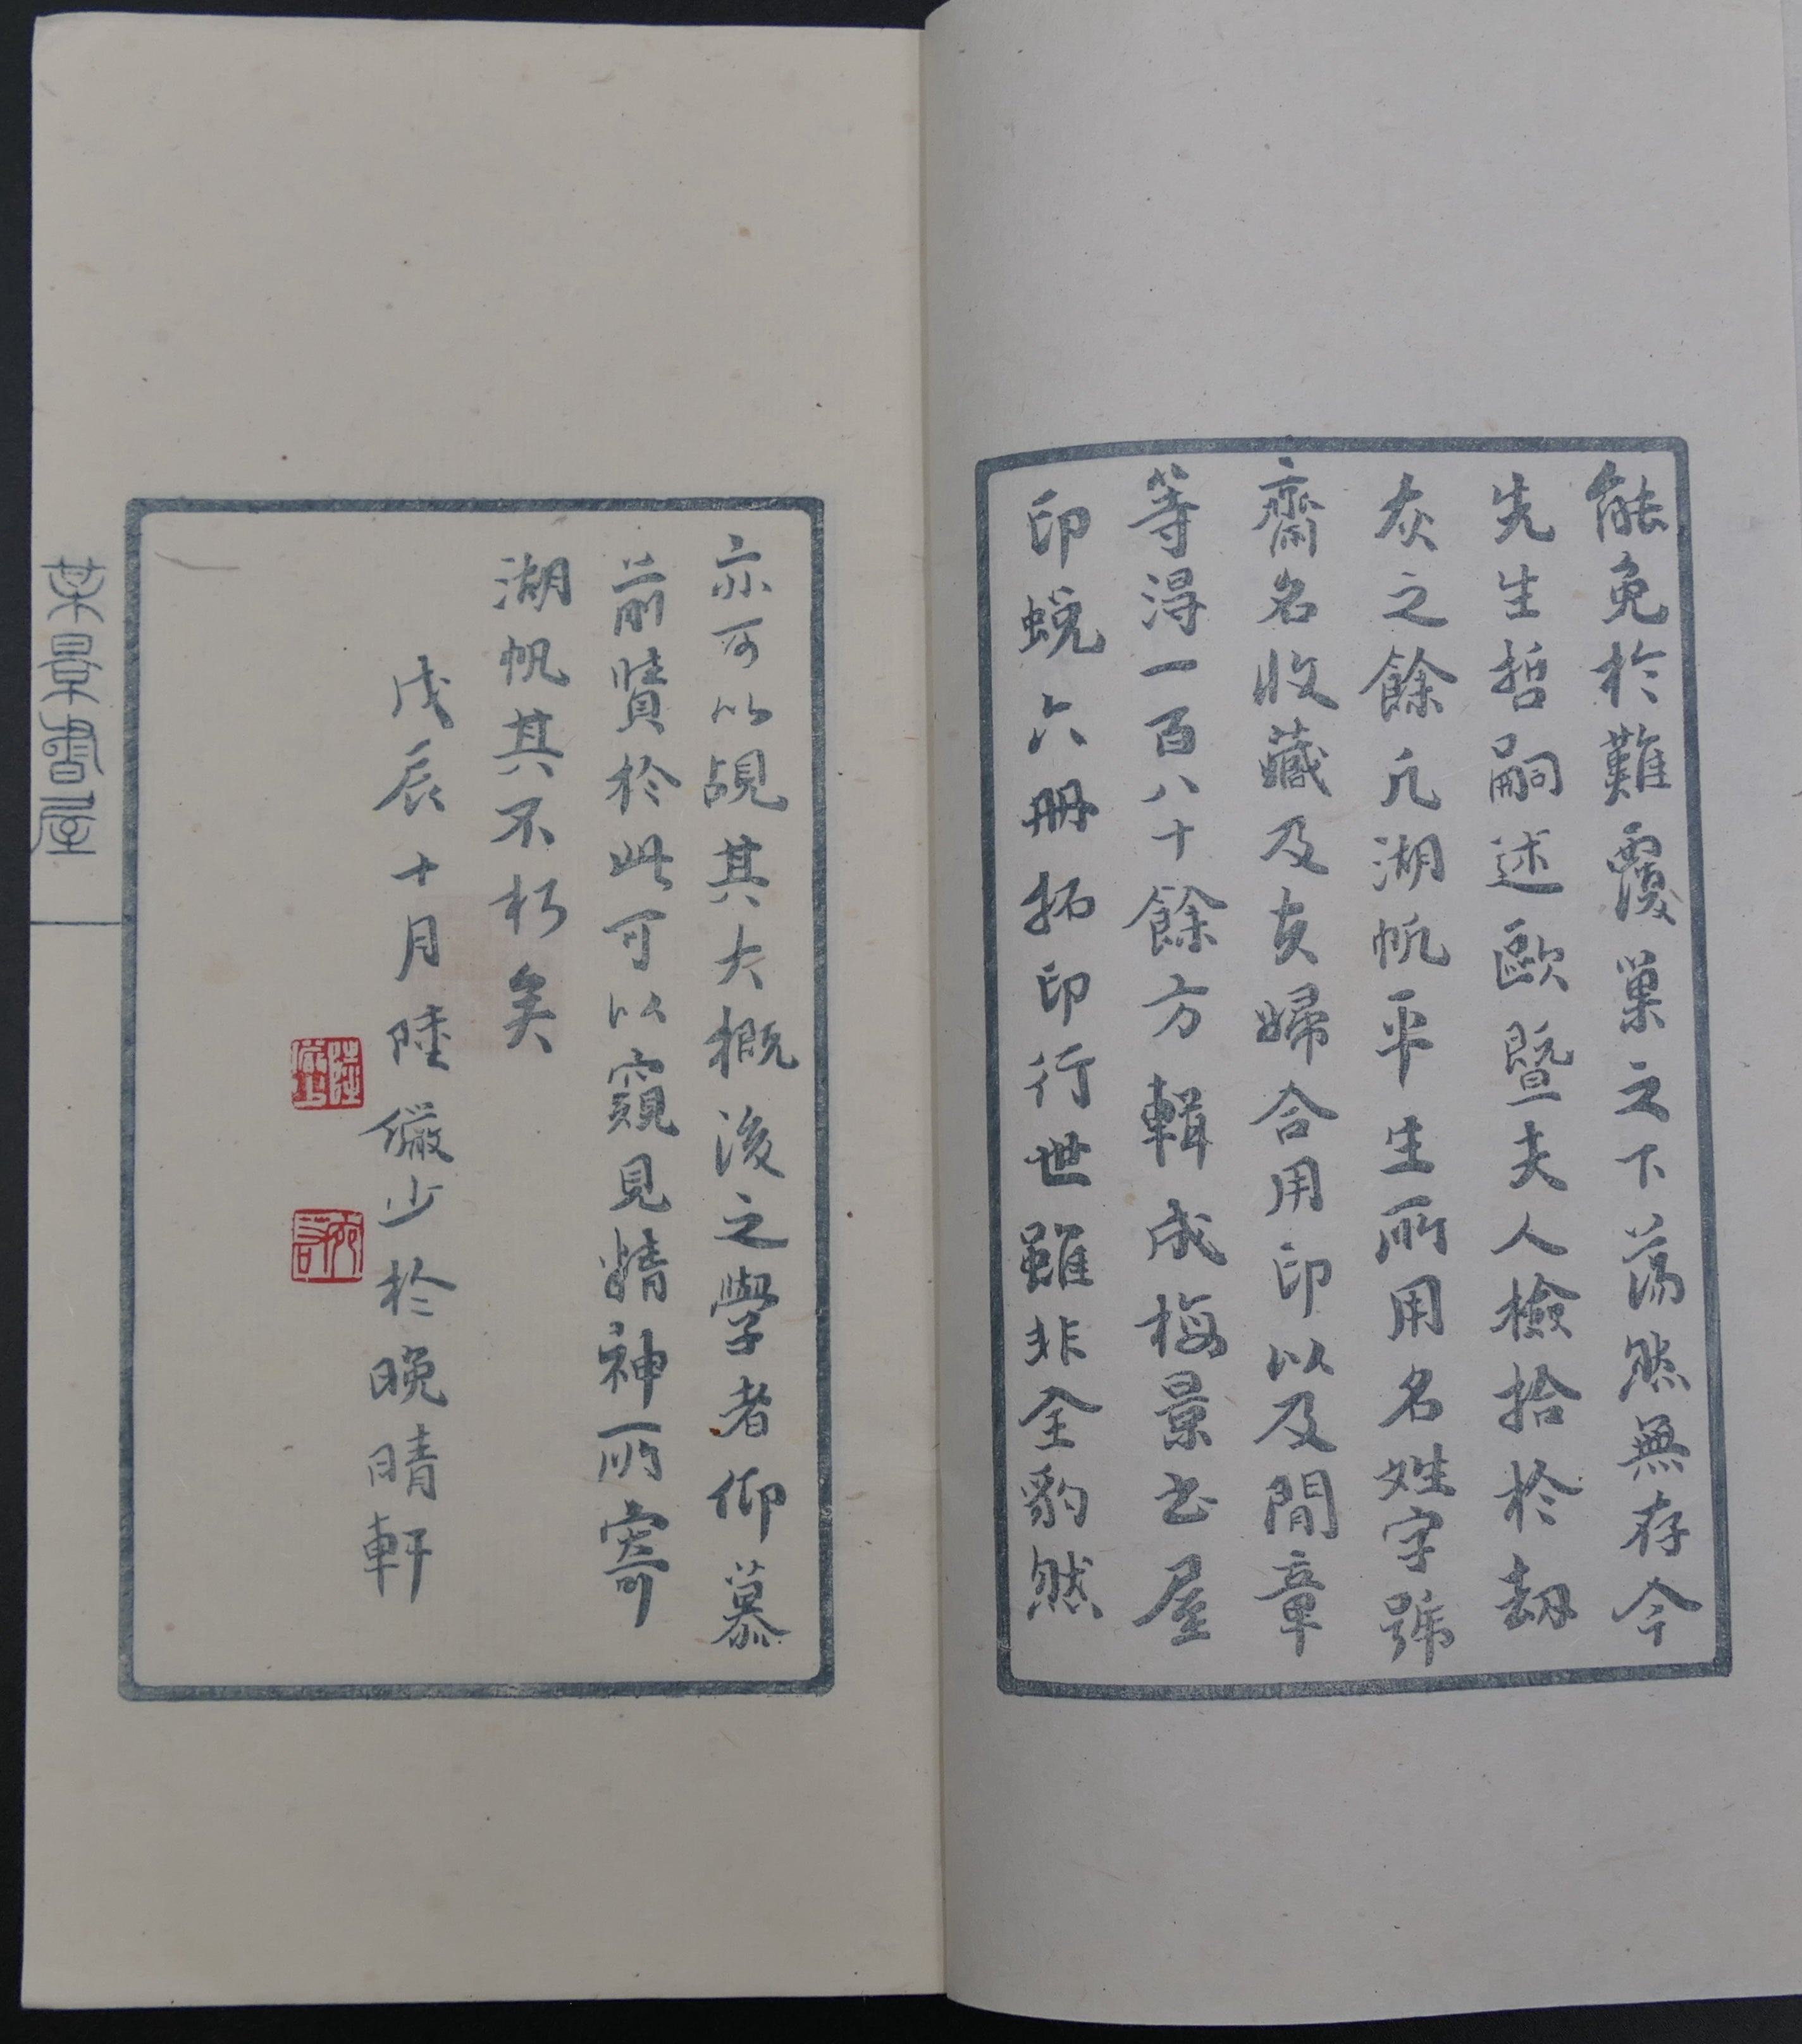 能免於難覆巢之下蕩然無存今
先生哲嗣述歐暨夫人檢拾於劫
灰之餘凡湖帆平生所用名姓字號
齋名收藏及夫婦合用印以及閒章
等得一百八十餘方輯成梅景书屋
印蜕六册拓印行世雖非全豹然
亦可以覘其大概後之學者仰慕
前賢於此可以窺見精神所寄
湖帆其不朽矣
戊辰十月陸儼少於晚晴軒
陸儼少
宛若
某景書屋